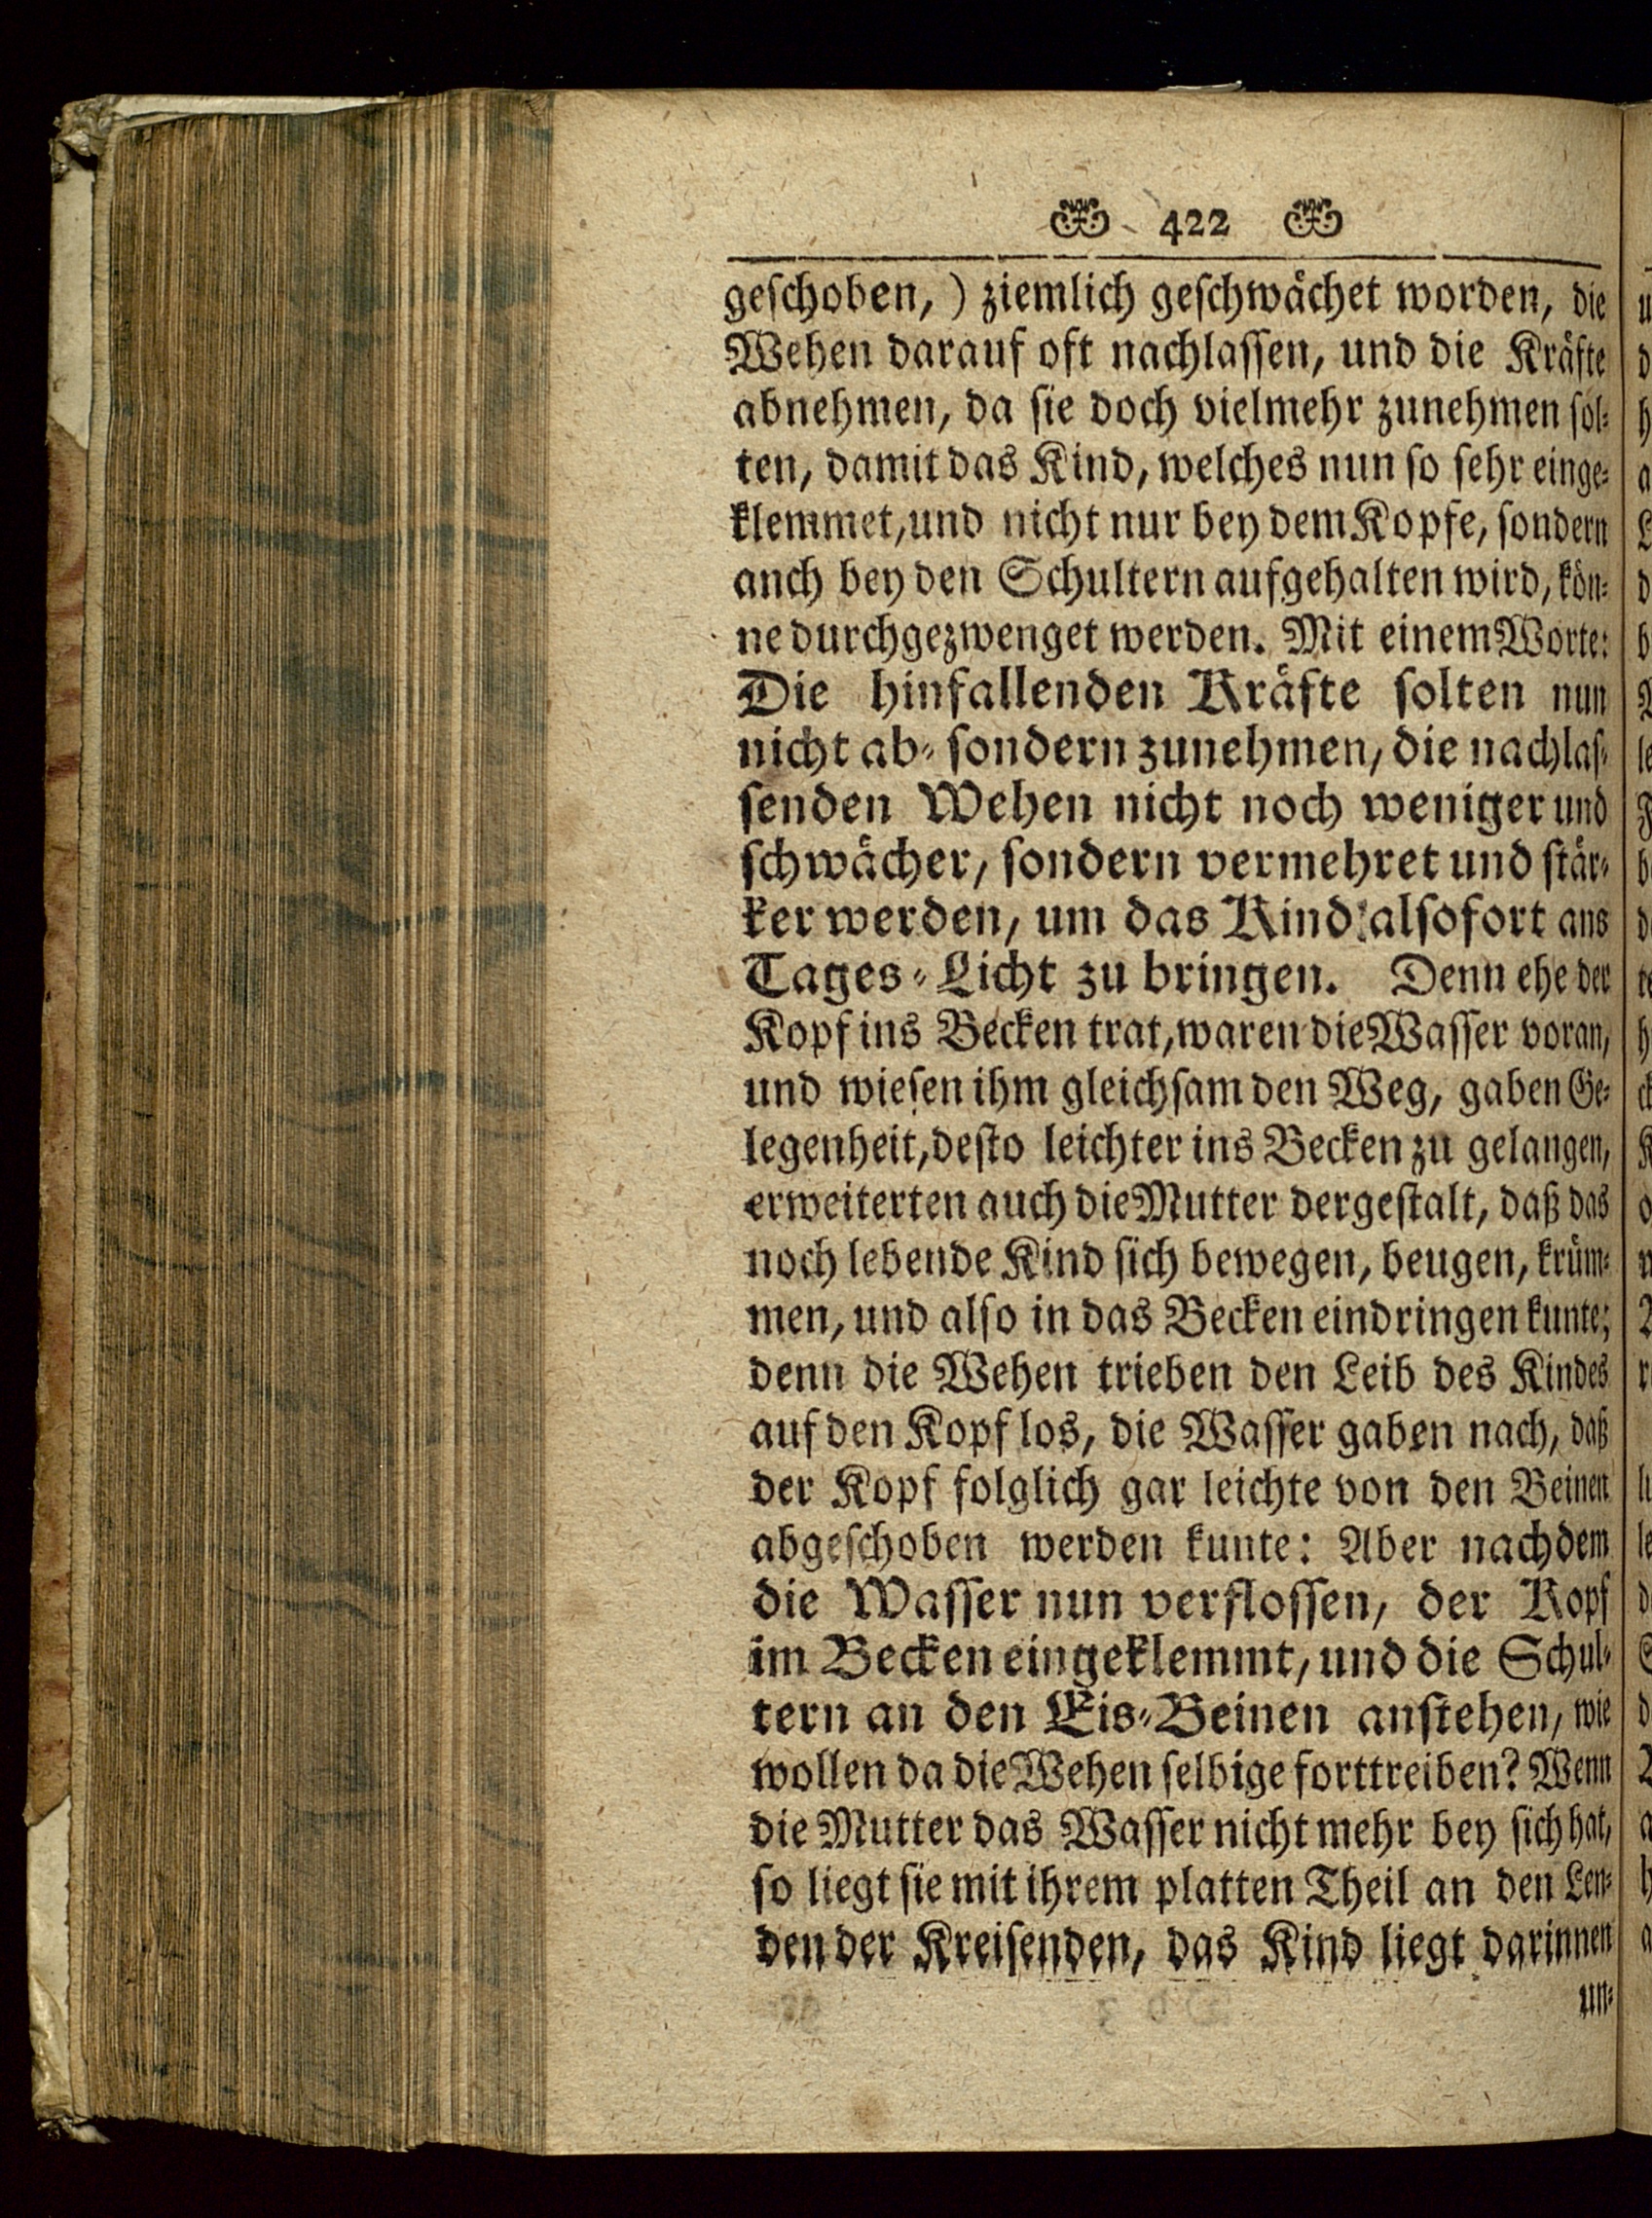 422
geſchoben, ) ziemlich geſchwächet worden, die
Wehen darauf oft nachlaſſen, und die Kräfte
abnehmen, da ſie doch vielmehr zunehmen ſol⸗
ten, damit das Kind, welches nun ſo ſehr einge⸗
klemmet, und nicht nur bey dem Kopfe, ſondern
anch bey den Schultern aufgehalten wird, kön⸗
ne durchgezwenget werden. Mit einem Worte:
Die hinfallenden Kräfte ſolten nun
nicht ab⸗ ſondern zunehmen, die nachlaſ⸗
ſenden Wehen nicht noch weniger und
ſchwächer, ſondern vermehret und ſtär⸗
ker werden, um das Kind alſofort ans
Tages⸗Licht zu bringen. Denn ehe der
Kopf ins Becken trat, waren die Waſſer voran,
und wieſen ihm gleichſam den Weg, gaben Ge⸗
legenheit, deſto leichter ins Becken zu gelangen,
erweiterten auch die Mutter dergeſtalt, daß das
noch lebende Kind ſich bewegen, beugen, krüm⸗
men, und alſo in das Becken eindringen kunte;
denn die Wehen trieben den Leib des Kindes
auf den Kopf los, die Waſſer gaben nach, daß
der Kopf folglich gar leichte von den Beinen
abgeſchoben werden kunte: Aber nachdem
die Waſſer nun verfloſſen, der Kopf
im Becken eingeklemmt, und die Schul⸗
tern an den Eis⸗Beinen anſtehen, wie
wollen da die Wehen ſelbige forttreiben? Wenn
die Mutter das Waſſer nicht mehr bey ſich hat,
ſo liegt ſie mit ihrem platten Theil an den Len⸗
den der Kreiſenden, das Kind liegt darinnen
un⸗